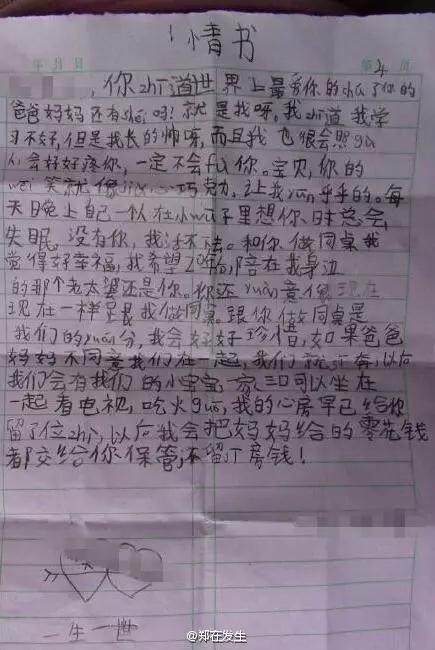 情书
年 月 日
第 4
，你zhī道世界上最爱你的chú了你的
爸爸妈妈还有shéi吗？就是我呀，我zhī道我学
习不好，但是我长的帅呀，而且我也很会照gù
人会好好疼你，一定不会fù你。宝贝，你的
wēi笑就像 心巧克力，让我yūn乎乎的。每
天晚上自己一个人在小wū子里想你时总会
失眠，没有你，我活不去。和你做同桌我
觉得好幸福，我希望20年后，陪在我身边
的那个老太婆还是你。你还yuàn意像现在
现在一样是跟我做同桌。跟你做同桌是
我们的yuán分，我会好好珍惜，如果爸爸
妈妈不同意我们在一起，我们就 奔，以后
我们会有我们的小宝宝一家三口可以坐在
一起看电视，吃火guō，我的心房早已给你
留了位zhì，以后我会把妈妈给的零花钱
都交给你保管，不留 房钱！
一生一世
@郑在发生